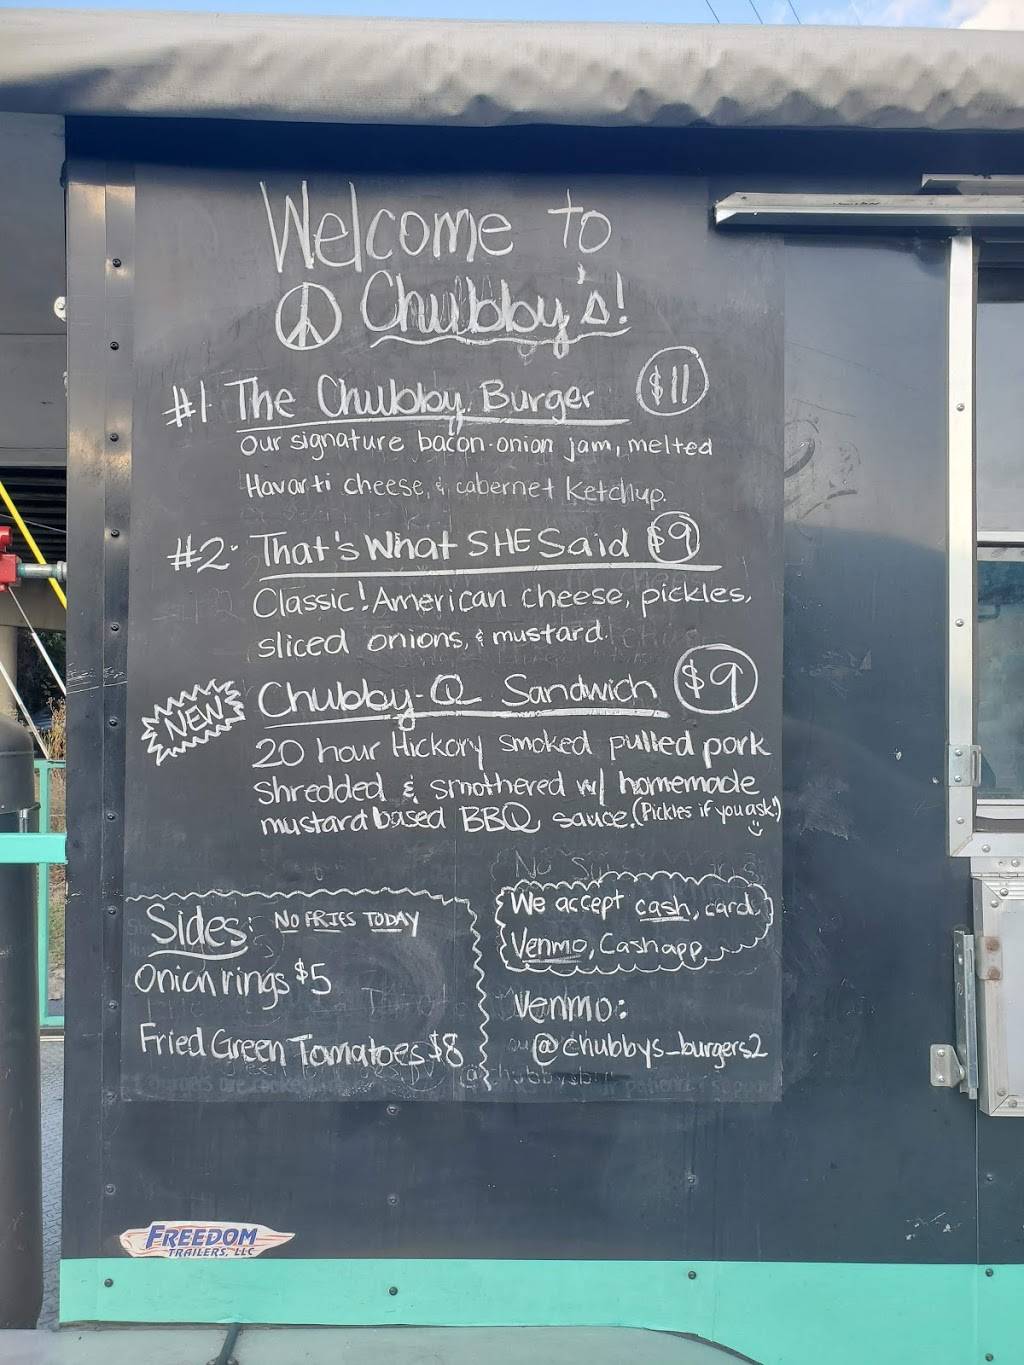 Welcome to
Chubby's!
#1. The Chubby Burger $11
Our signature bacon-onion jam, melted
Havarti cheese, & cabernet Ketchup.
#2. That's What SHE Said $9
Classic! American cheese, pickles,
sliced onions, & mustard.
NEW Chubby-Q Sandwich $9
20 hour Hickory smoked pulled pork
shredded & smothered w/ homemade
mustard based BBQ sauce. (Pickles if you ask!)
Sides: NO FRIES TODAY
Onion rings $5
Fried Green Tomatoes $8
We accept cash, card,
Venmo, Cashapp
Venmo:
@chubbys_burgers2
FREEDOM
TRAILERS, LLC